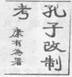 孔子改制
考
康有為著